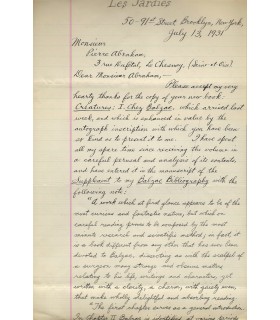 Les Jardies
50-91st Street Brooklyn, New York,
July 13, 1931
Monsieur
Pierre Abraham,
3 rue Rafital, Le Chesnay, (Seine et Oise)
Dear Monsieur Abraham,—
Please accept my very
hearty thanks for the copy of your new book
Créatures: I. Chez Balzac, which arrived last
week, and which is enhanced in value by the
autograph inscription with which you have been
so kind as to present it to me. I have spent
all my spare time since receiving the volume in
a careful perusal and analysis of its contents
and have entered it in the manuscript of the
Supplement to my Balzac Bibliography with the
following note:
"A work which at first glance appears to be of the
most curious and fantastic nature, but which on
careful reading proves to be composed by the most
minute research and scientific method; in fact, it
is a book different from any other that has ever been
devoted to Balzac, discovering as with the scalpel of
a surgeon many strange and obscure matters
relating to his life, writings and characters, yet
written with a clarity, a charm, with gaiety even
that make wholly delightful and absorbing reading.
"The first chapter serves as a general introduction.
In Chapter II Balzac is